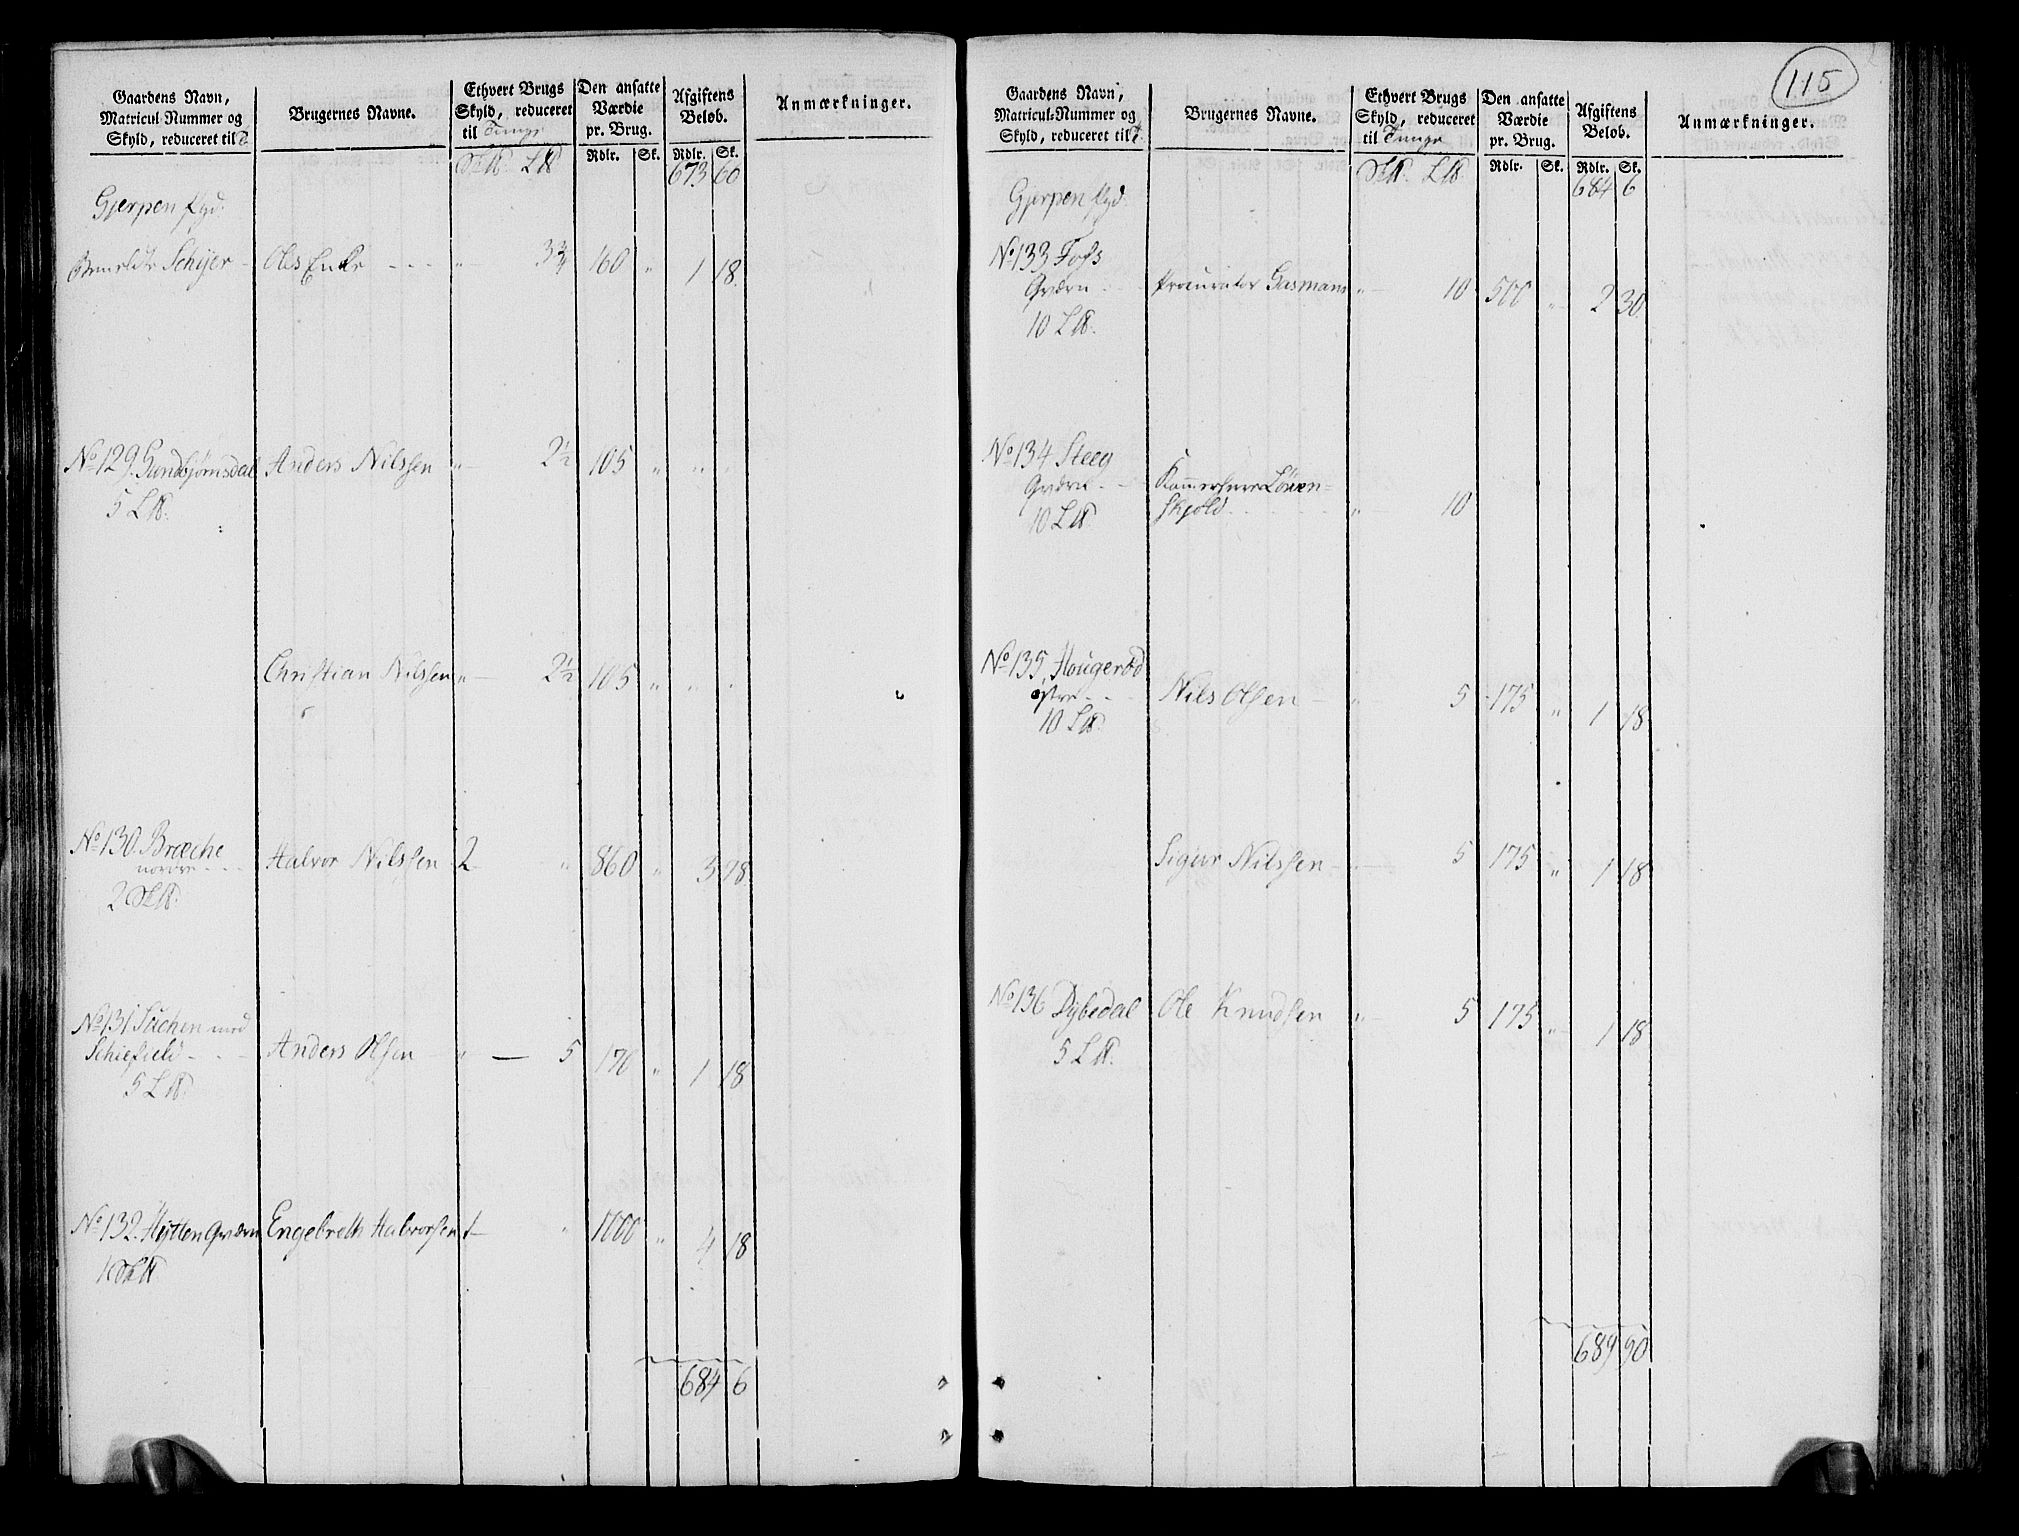 Gaardens Navn,
Matricul-Nummer og
Skyld, reduceret til T.
Brugernes Navne.
Ethvert Brugs
Skyld, reduceret
til Tunge
Den ansatte
Værdie
pr. Brug.
Afgiftens
Beløb.
Anmærkninger.
Rdlr. Sk. Rdlr. Sk.
673 60
Gjerpen
Schyer - Oles Enke - - - „ 3¾ 160 „ 1 18.
No 129. Gundbjørnsdal Anders Nilssen „ 2½ 105 „ „ „
5 L℔.
Christian Nilssen „ 2½ 105 „ „ „
No 130. Bræche Halvor Nilssen 2 „ 860 „ 3 78
nordre - - -
2 S℔.
No 131 Siichen med
Schiefield - - - Anders Olsen „ — 5 170 „ 1 18
5 L℔.
No 132. Hÿtten Qværn Engebreth Halvorsen 1 „ 1000 „ 4 18
1 S℔
684 6
115
Gaardens Navn,
Matricul-Nummer og
Skyld, reduceret til T.
Brugernes Navne.
Ethvert Brugs
Skyld, reduceret
til Tunge
Den ansatte
Værdie
pr. Brug.
Afgiftens
Beløb.
Anmærkninger.
Rdlr. Sk. Rdlr. Sk.
S℔. L℔. 684 6
Gjerpen
No 133 Foss
Qværn - Procurator Gasmann „ 10 500 „ 2 30.
10 L℔.
No 134 Steeg
Qværn - - Kammerherre Löven=
skjold - - - „ 10
10 L℔.
No 135, Hougeröd
østre - - - Nils Olsen - „ 5 175 „ 1 18
10 L℔.
Sigur Nilssen - 5 175 „ 1 18
No 136 Dÿbedal Ole Knudsen „ 5 175 „ 1 18
5 L℔.
689 90